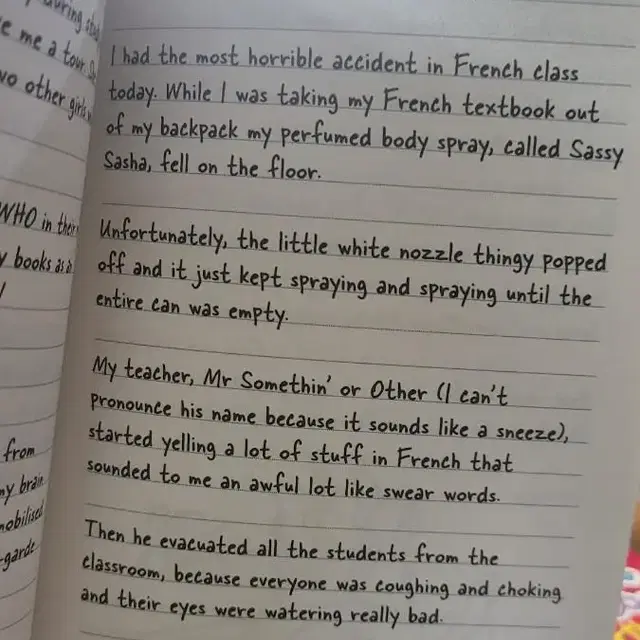 during
e me a tour
wo other girls
WHO in their
y books as a
from
my brain
mobilised
-garde
I had the most horrible accident in French class
today. While I was taking my French textbook out
of my backpack my perfumed body spray, called Sassy
Sasha, fell on the floor.
Unfortunately, the little white nozzle thingy popped
off and it just kept spraying and spraying until the
entire can was empty.
My teacher, Mr Somethin' or Other (I can't
pronounce his name because it sounds like a sneeze),
started yelling a lot of stuff in French that
sounded to me an awful lot like swear words.
Then he evacuated all the students from the
classroom, because everyone was coughing and choking
and their eyes were watering really bad.